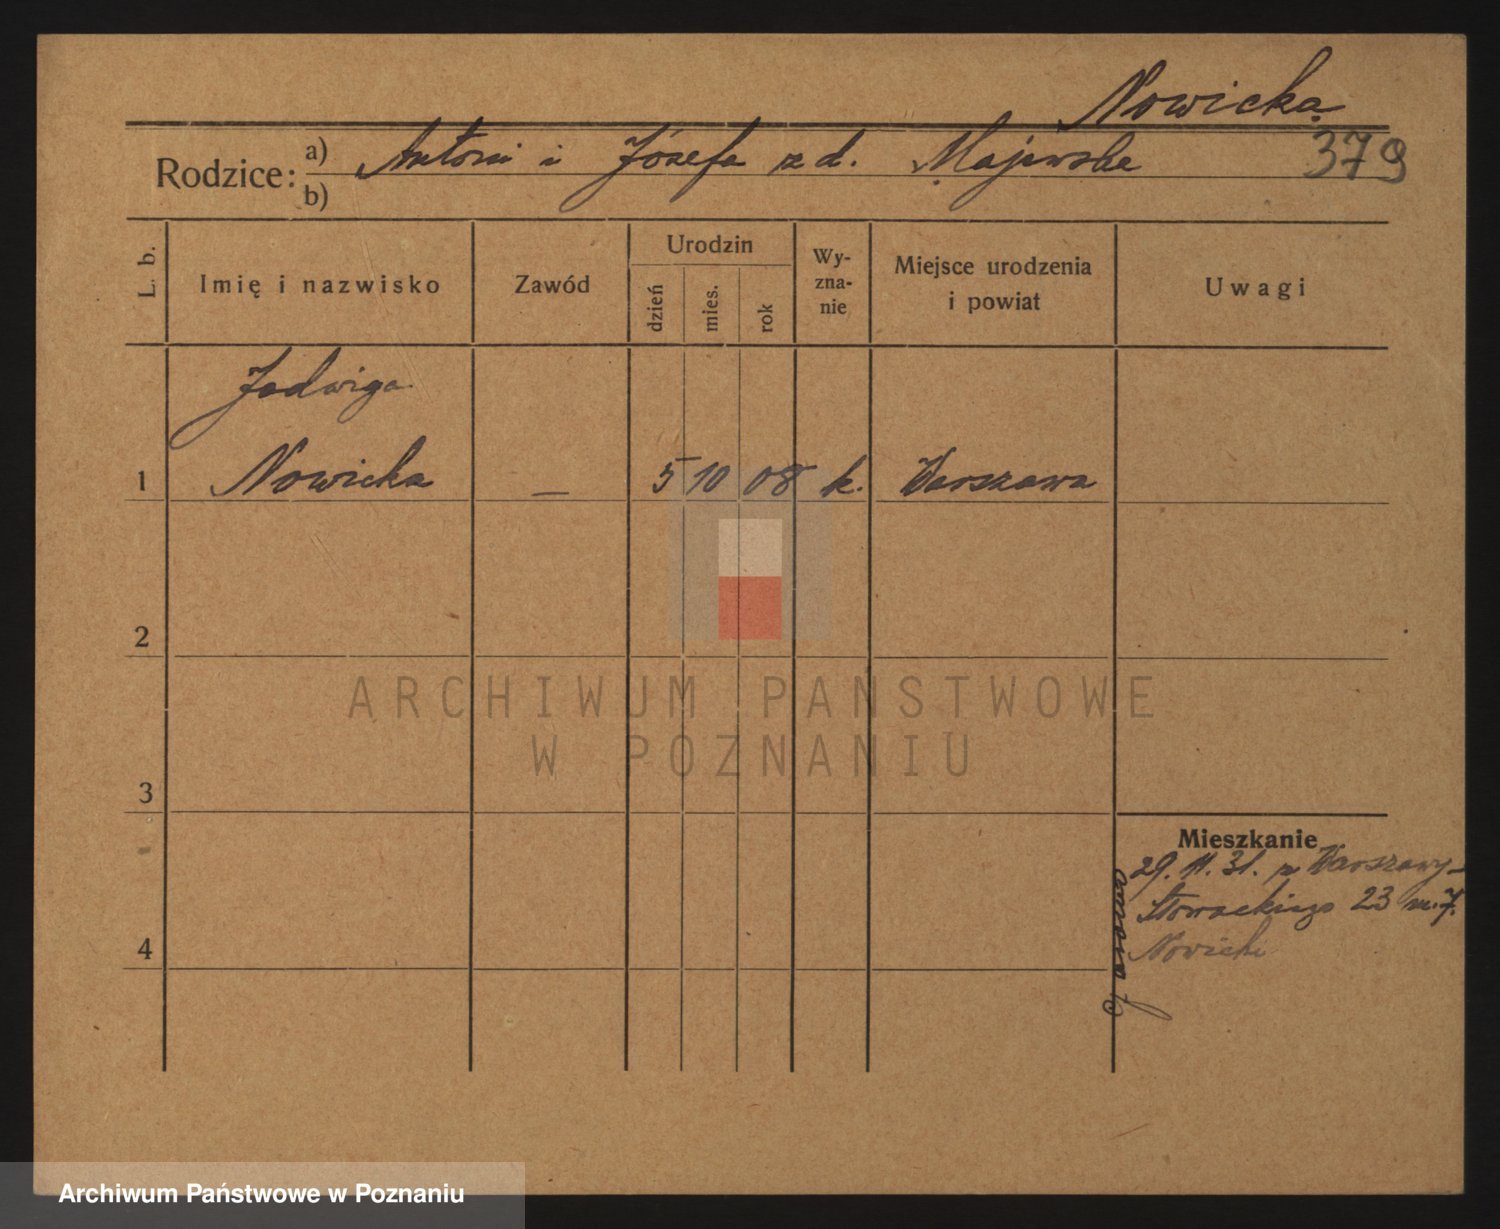 Nowicka
Rodzice: a) Antoni i Józefa z d. Majewska 379
b)
L. b. Imię i nazwisko Zawód Urodzin dzień mies. rok Wy-zna-nie Miejsce urodzenia i powiat Uwagi
Jadwiga
1 Nowicka — 5 10 08 k. Warszawa
2
3
Mieszkanie
29. 11. 31. z Warszawy –
Słowackiego 23 m. 7.
4 Nowicki
ARCHIWUM PAŃSTWOWE
W POZNANIU
Archiwum Państwowe w Poznaniu